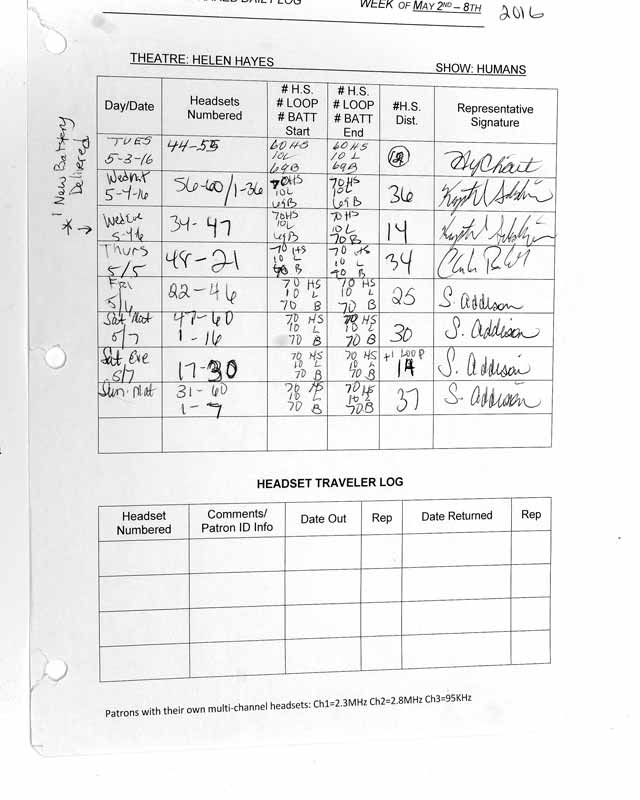 WEEK OF MAY 2ND – 8TH 2016
THEATRE: HELEN HAYES
SHOW: HUMANS
* 1 New Battery
Delivered →
Day/Date
Headsets
Numbered
# H.S.
# LOOP
# BATT
Start
# H.S.
# LOOP
# BATT
End
#H.S.
Dist.
Representative
Signature
TUES
5-3-16
44-55
60 HS
10L
69B
60 HS
10 L
69B
12
5-4-16
56-60/1-36
70HS
10L
69B
70HS
10L
69B
36
Wed Eve
5-4-16
34-47
70HS
10L
69B
70HS
10L
70B
14
Thurs
5/5
48-21
70 HS
10 L
70 HS
10 L
34
FRI
5/6
22-46
70 HS
10 L
70 B
70 HS
10 L
70 B
25
S. Addison
Sat Mat
5/7
47-60
1-16
70 HS
10 L
70 B
70 HS
10 L
70 B
30
S. Addison
Sat Eve
5/7
17-30
70 HS
10 L
70 B
70 HS
10 L
70 B
+1 LOOP
14
S. Addison
Sun. Mat
31-60
1-7
70 HS
10 L
70 B
70 HS
10 L
70B
37
S. Addison
HEADSET TRAVELER LOG
Headset
Numbered
Comments/
Patron ID Info
Date Out
Rep
Date Returned
Rep
Patrons with their own multi-channel headsets: Ch1=2.3MHz Ch2=2.8MHz Ch3=95KHz